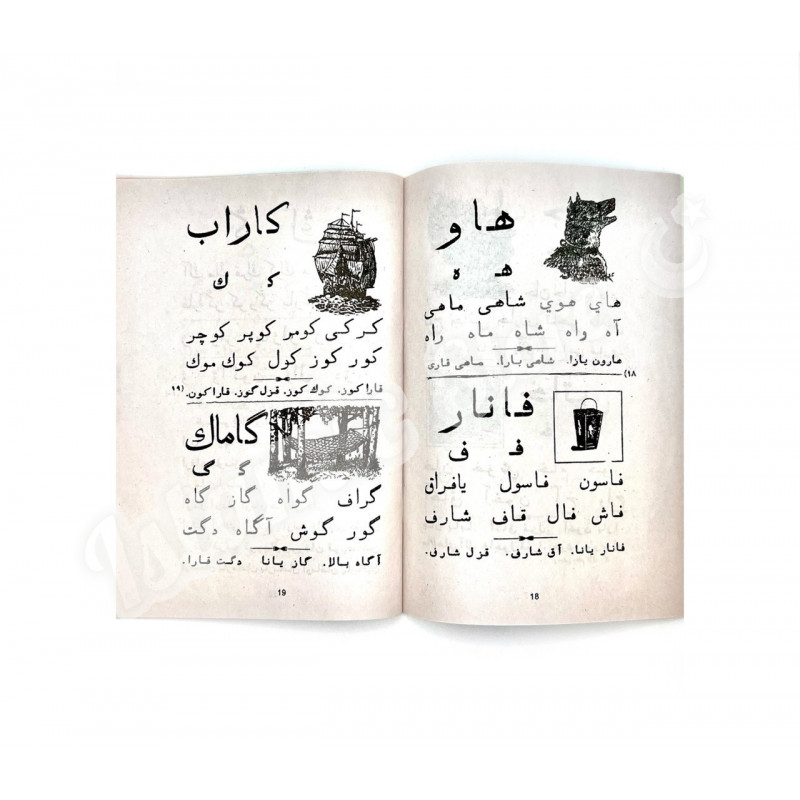 هاو
هـ ه
هاي هوي شاهى ماهى
آه واه شاه ماه راه
هارون يازا. شاهى بارا. ماهى قارى
(١٨
فانار
فـ ف
فاسون فاسول يافراق
فاش فال قاف شارف
فانار يانا. آق شارف. قزل شارف.
18
كاراب
كـ ك
كركى كومر كوپر كوچر
كور كوز كول كوك موك
قارا كوز. كوك كوز. قزل گوز. قارا كون. (١٩
گاماك
گـ گ
گراف گواه گاز گاه
گور گوش آگاه دگت
آگاه بالا. گاز يانا دگت قارا.
19